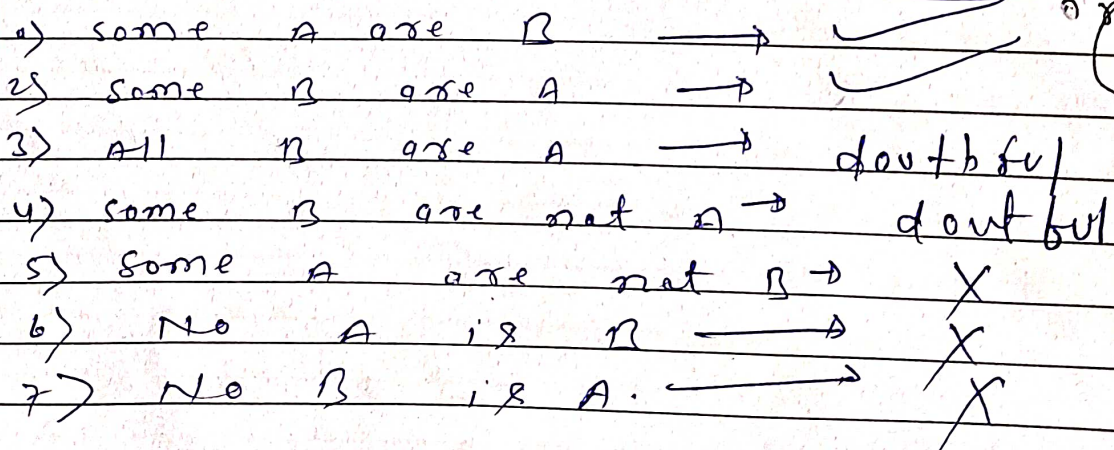 1) some A are B → ✓
2) Some B are A → ✓
3) All B are A → doutbful
4) some B are not A → doutful
5) some A are not B → X
6) No A is B → X
7) No B is A. → X